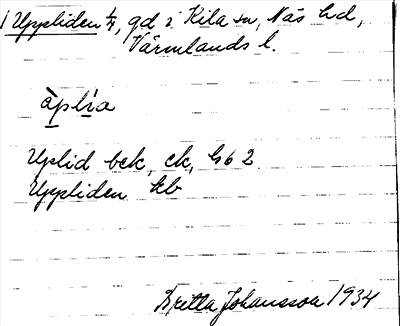 1 Uppliden 1/4, gd i Kila sn, Näs hd,
Värmlands l.
àplía
Uplid bek, ek, Gb 2
Uppliden kb
Britta Johansson 1934